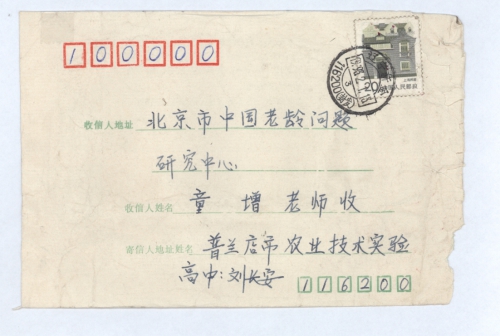 100000
20
中国人民邮政
116200
收信人地址 北京市中国老龄问题
研究中心
收信人姓名 童增老师收
寄信人地址姓名 普兰店市农业技术实验
高中:刘长安
116200